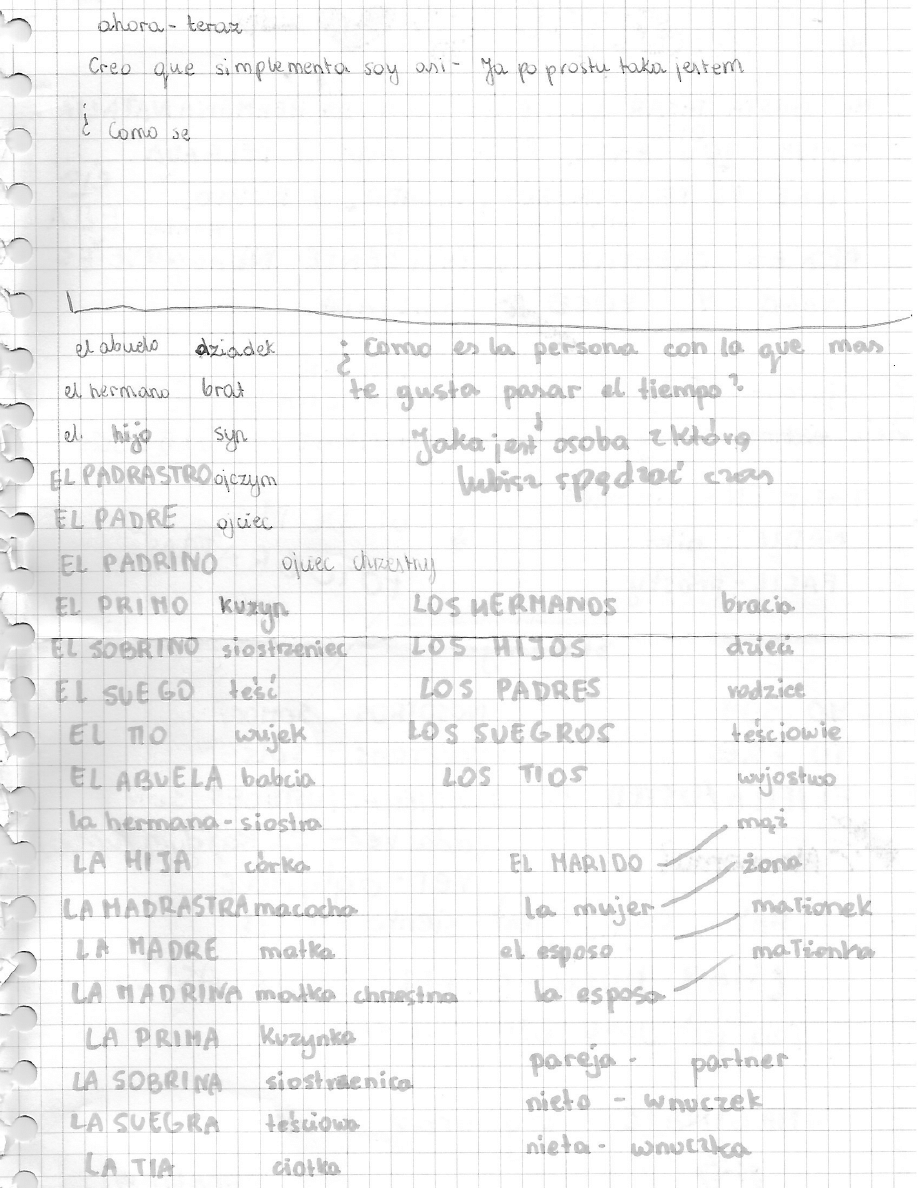 ahora - teraz
Creo que simplementa soy asi - Ja po prostu taka jestem
¿ Como se
el abuelo dziadek
¿ Como es la persona con la que mas
el hermano brat
te gusta pasar el tiempo?
el hijo syn
Jaka jest osoba z którą
EL PADRASTRO ojczym
lubisz spędzać czas
EL PADRE ojciec
EL PADRINO ojciec chrzestny
EL PRIMO kuzyn LOS HERMANOS bracia
EL SOBRINO siostrzeniec LOS HIJOS dzieci
EL SUEGO teść LOS PADRES rodzice
EL TIO wujek LOS SUEGROS teściowie
EL ABUELA babcia LOS TIOS wujostwo
la hermana - siostra mąż
LA HIJA córka EL MARIDO żona
LA MADRASTRA macocha la mujer małżonek
LA MADRE matka el esposo małżonka
LA MADRINA matka chrzestna la esposa
LA PRIMA kuzynka
pareja - partner
LA SOBRINA siostrzenica
nieto - wnuczek
LA SUEGRA teściowa
nieta - wnuczka
LA TIA ciotka